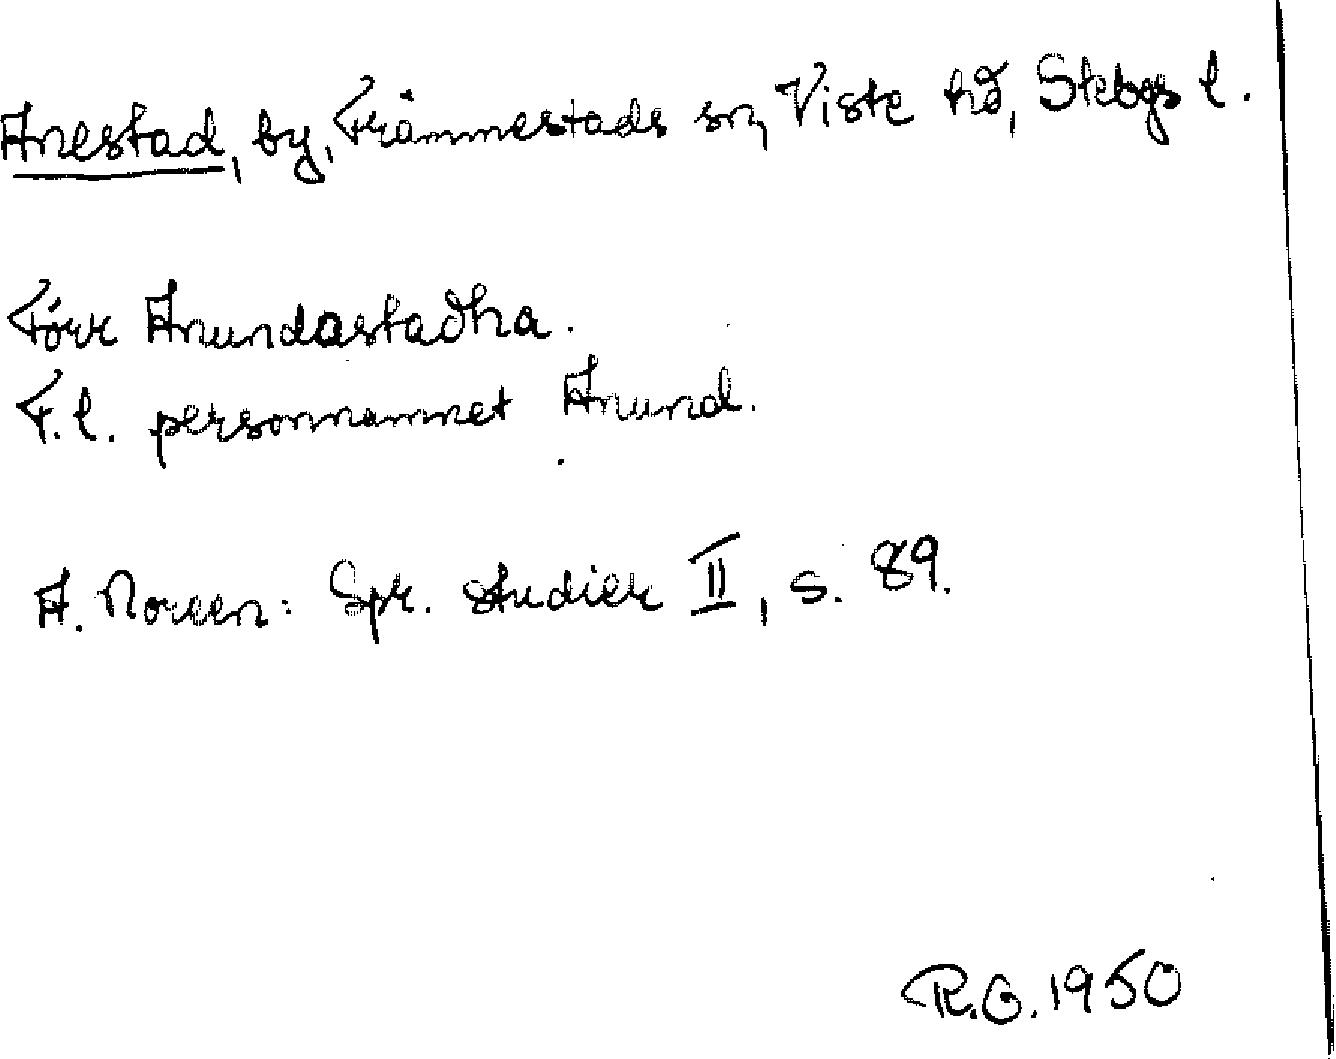 Anestad, by, Främmestads sn, Viste hd, Skbgs l.
Förr Anundastadha.
F.l. personnamnet Anund.
A. Noreen: Spr. studier II, s. 89.
R.G. 1950